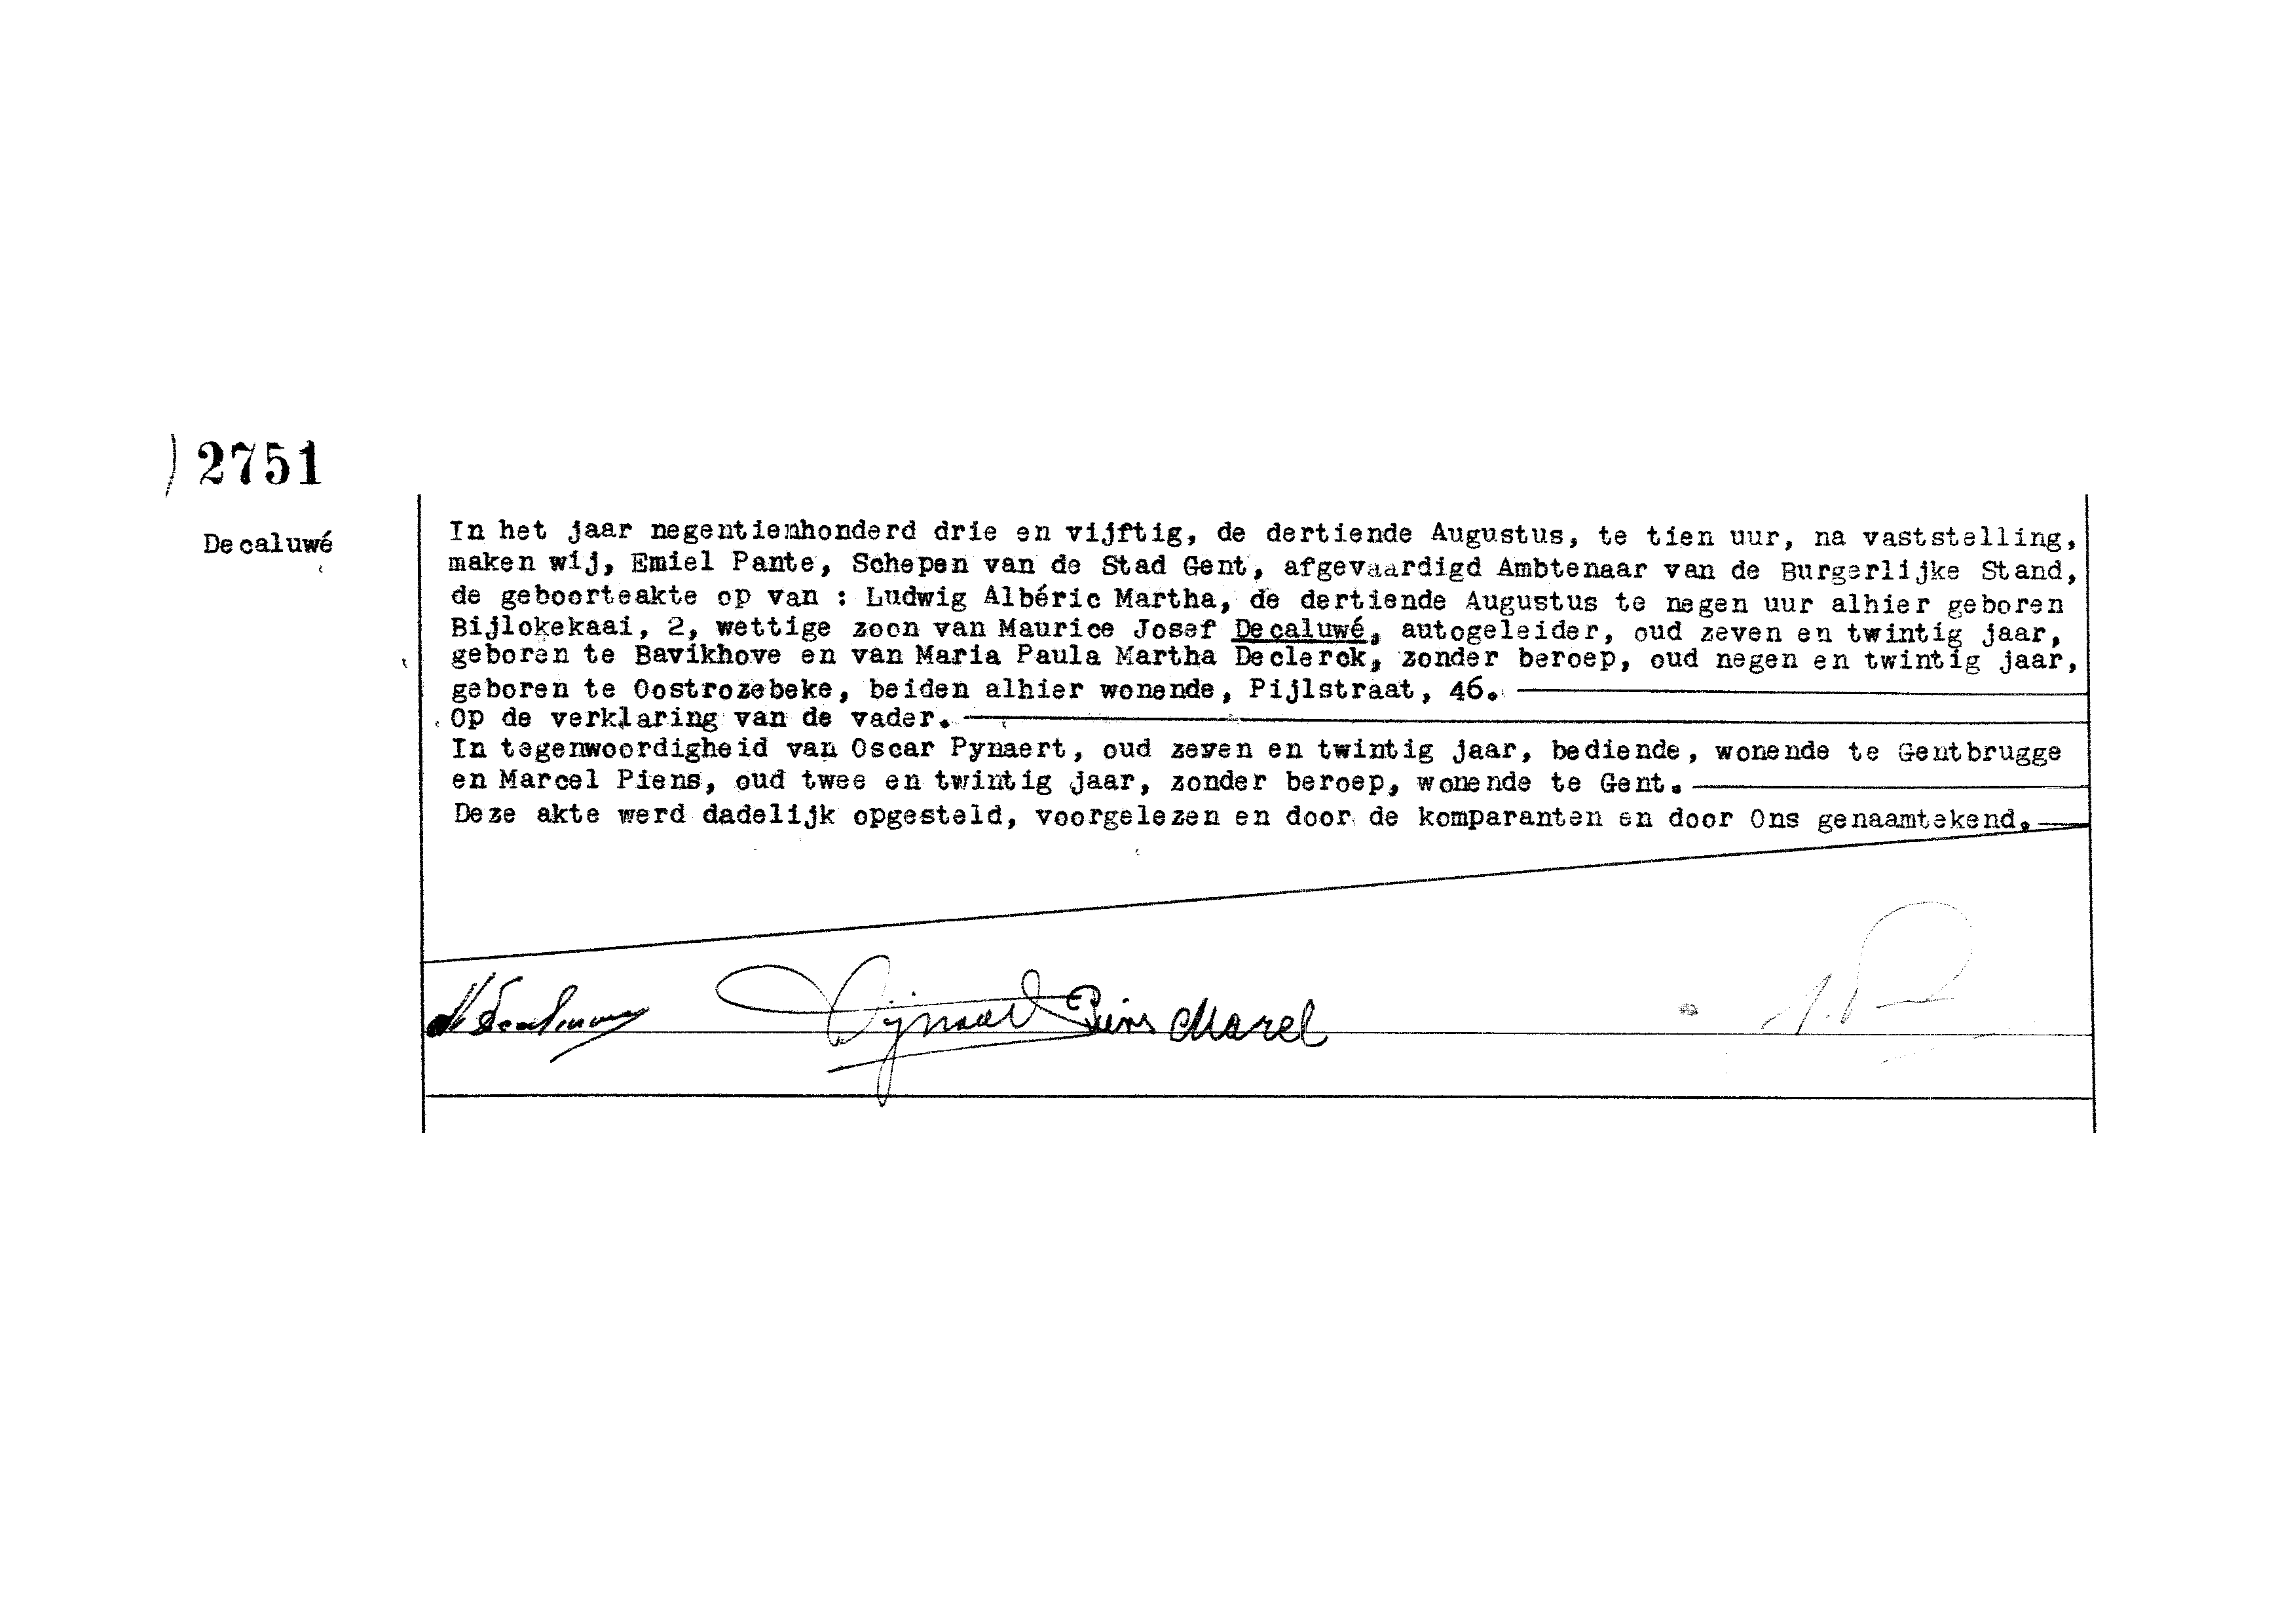 2751
Decaluwé
In het jaar negentienhonderd drie en vijftig, de dertiende Augustus, te tien uur, na vaststelling,
maken wij, Emiel Pante, Schepen van de Stad Gent, afgevaardigd Ambtenaar van de Burgerlijke Stand,
de geboorteakte op van : Ludwig Albéric Martha, de dertiende Augustus te negen uur alhier geboren
Bijlokekaai, 2, wettige zoon van Maurice Josef Decaluwé, autogeleider, oud zeven en twintig jaar,
geboren te Bavikhove en van Maria Paula Martha Declerck, zonder beroep, oud negen en twintig jaar,
geboren te Oostrozebeke, beiden alhier wonende, Pijlstraat, 46.
Op de verklaring van de vader.
In tegenwoordigheid van Oscar Pynaert, oud zeven en twintig jaar, bediende, wonende te Gentbrugge
en Marcel Piens, oud twee en twintig jaar, zonder beroep, wonende te Gent.
Deze akte werd dadelijk opgesteld, voorgelezen en door de komparanten en door Ons genaamtekend.
Piens Marcel